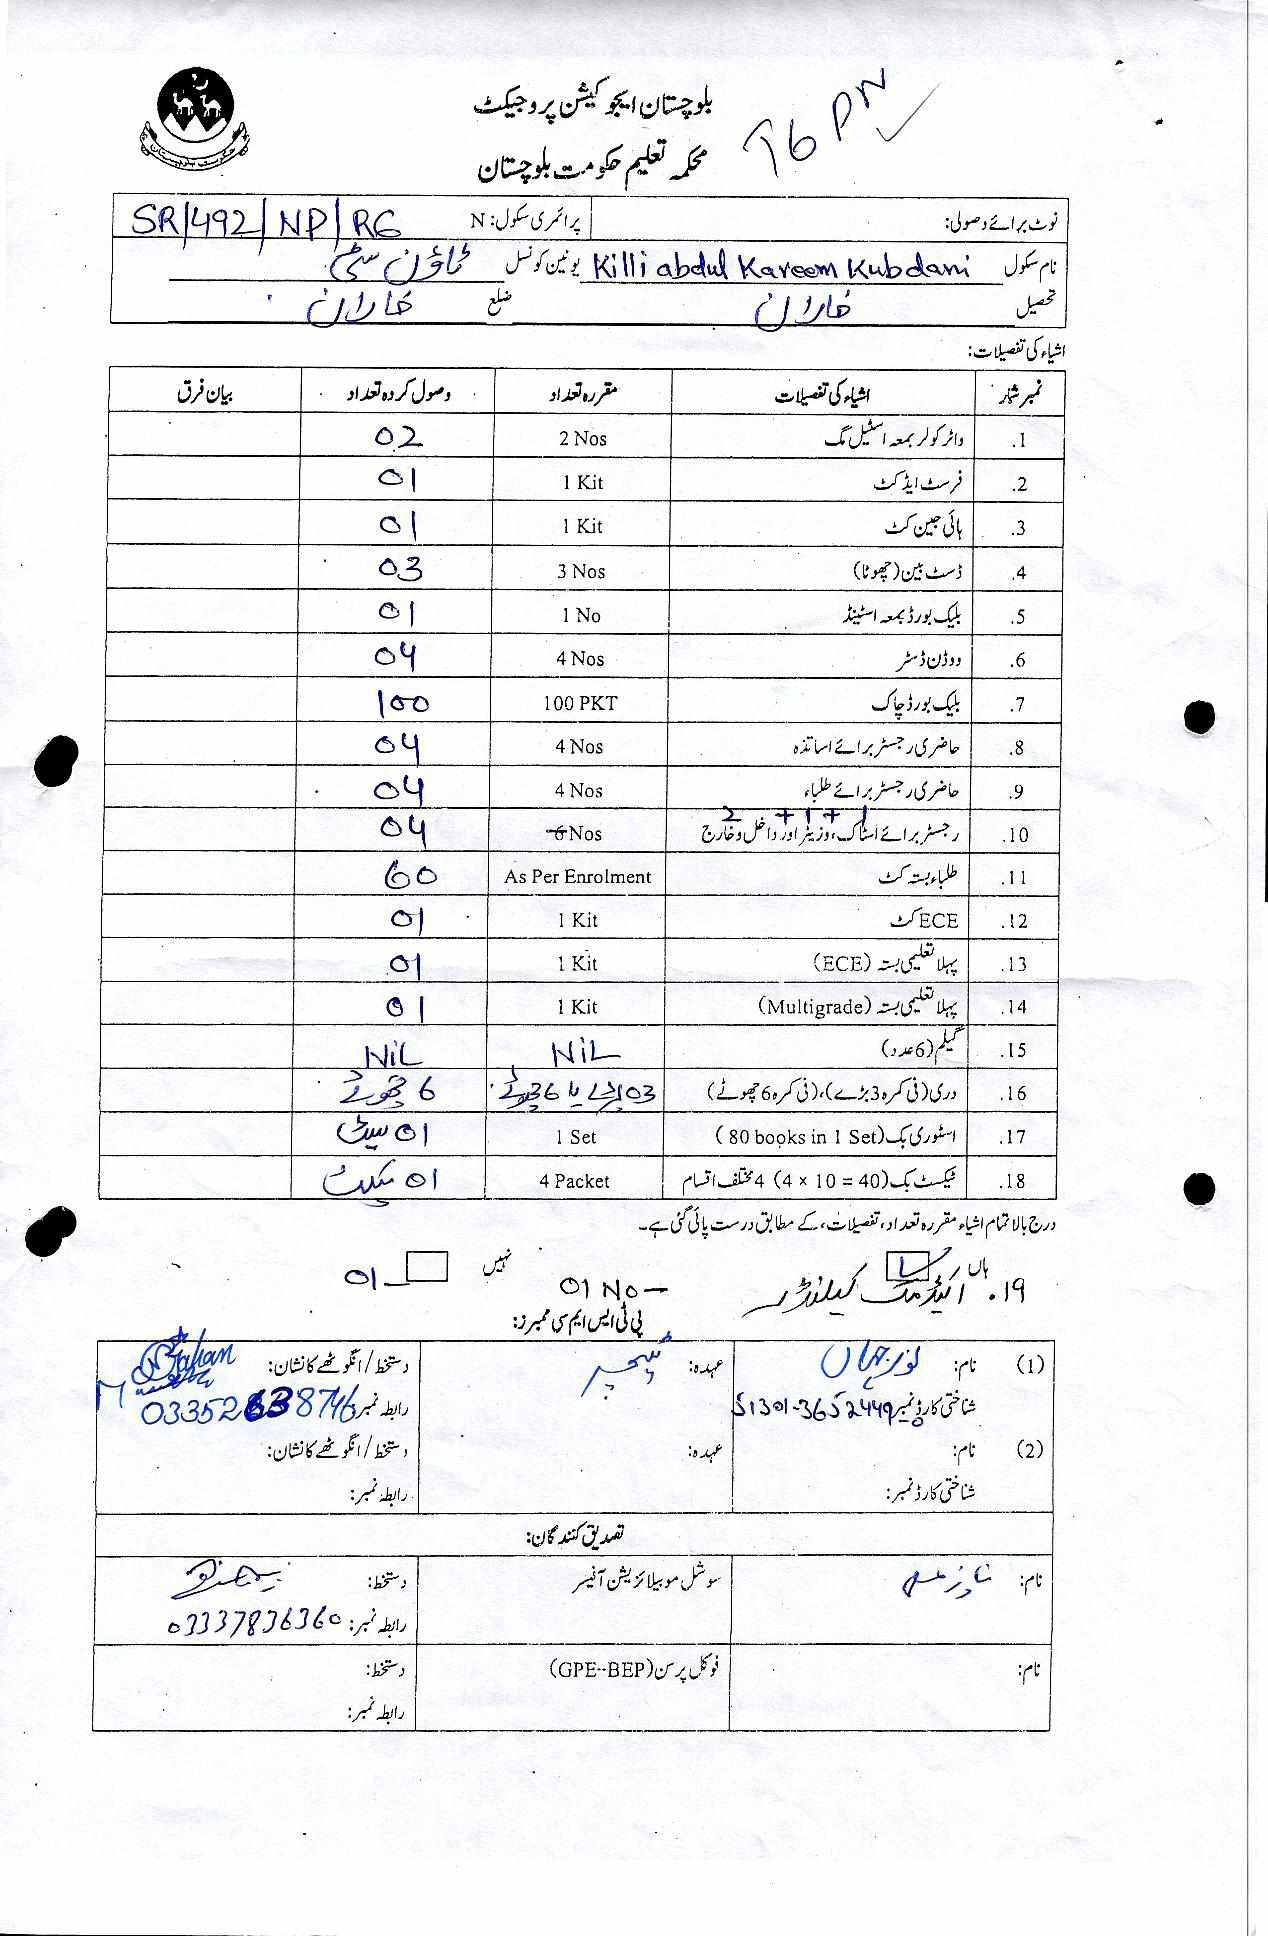 حکومت بلوچستان
بلوچستان ایجوکیشن پروجیکٹ
محکمہ تعلیم حکومت بلوچستان
نوٹ برائے وصولی: پرائمری سکول: N SR/492/NP/RG
نام سکول Killi abdul Kareem Kubdani یونین کونسل ٹاؤن سٹی
تحصیل خاران ضلع خاران
اشیاء کی تفصیلات:
نمبر شمار اشیاء کی تفصیلات مقررہ تعداد وصول کردہ تعداد بیان فرق
1. واٹر کولر بمعہ اسٹیل مگ 2 Nos 02
2. فرسٹ ایڈ کٹ 1 Kit 01
3. ہائی جین کٹ 1 Kit 01
4. ڈسٹ بین (چھوٹا) 3 Nos 03
5. بلیک بورڈ بمعہ اسٹینڈ 1 No 01
6. ووڈن ڈسٹر 4 Nos 04
7. بلیک بورڈ چاک 100 PKT 100
8. حاضری رجسٹر برائے اساتذہ 4 Nos 04
9. حاضری رجسٹر برائے طلباء 4 Nos 04
2 + 1 + 1
10. رجسٹر برائے اسٹاک، وزیٹر اور داخل و خارج 6 Nos 04
11. طلباء بستہ کٹ As Per Enrolment 60
12. ECE کٹ 1 Kit 01
13. پہلا تعلیمی بستہ (ECE) 1 Kit 01
14. پہلا تعلیمی بستہ (Multigrade) 1 Kit 01
15. گیلم (6 عدد) NiL NiL
16. دری (فی کمرہ 3 بڑے)، (فی کمرہ 6 چھوٹے) 03 بڑے یا 6 چھوٹے 6 چھوٹے
17. اسٹوری بک (80 books in 1 Set) 1 Set 01 سیٹ
18. ٹیکسٹ بک (4 × 10 = 40) 4 مختلف اقسام 4 Packet 01 پیکٹ
درج بالا تمام اشیاء مقررہ تعداد، تفصیلات، کے مطابق درست پائی گئی ہے۔
ہاں نہیں
19. اکیڈمک کیلنڈر 01 No — 01
پی ٹی ایس ایم سی ممبرز:
(1) نام: نور جہاں عہدہ: ٹیچر دستخط/انگوٹھے کا نشان: Jahan
شناختی کارڈ نمبر رابطہ نمبر
(2) نام: عہدہ: دستخط/انگوٹھے کا نشان:
شناختی کارڈ نمبر: رابطہ نمبر:
تصدیق کنندگان:
نام: سوشل موبیلائزیشن آفیسر دستخط:
رابطہ نمبر: 03337836360
نام: فوکل پرسن (GPE--BEP) دستخط:
رابطہ نمبر: